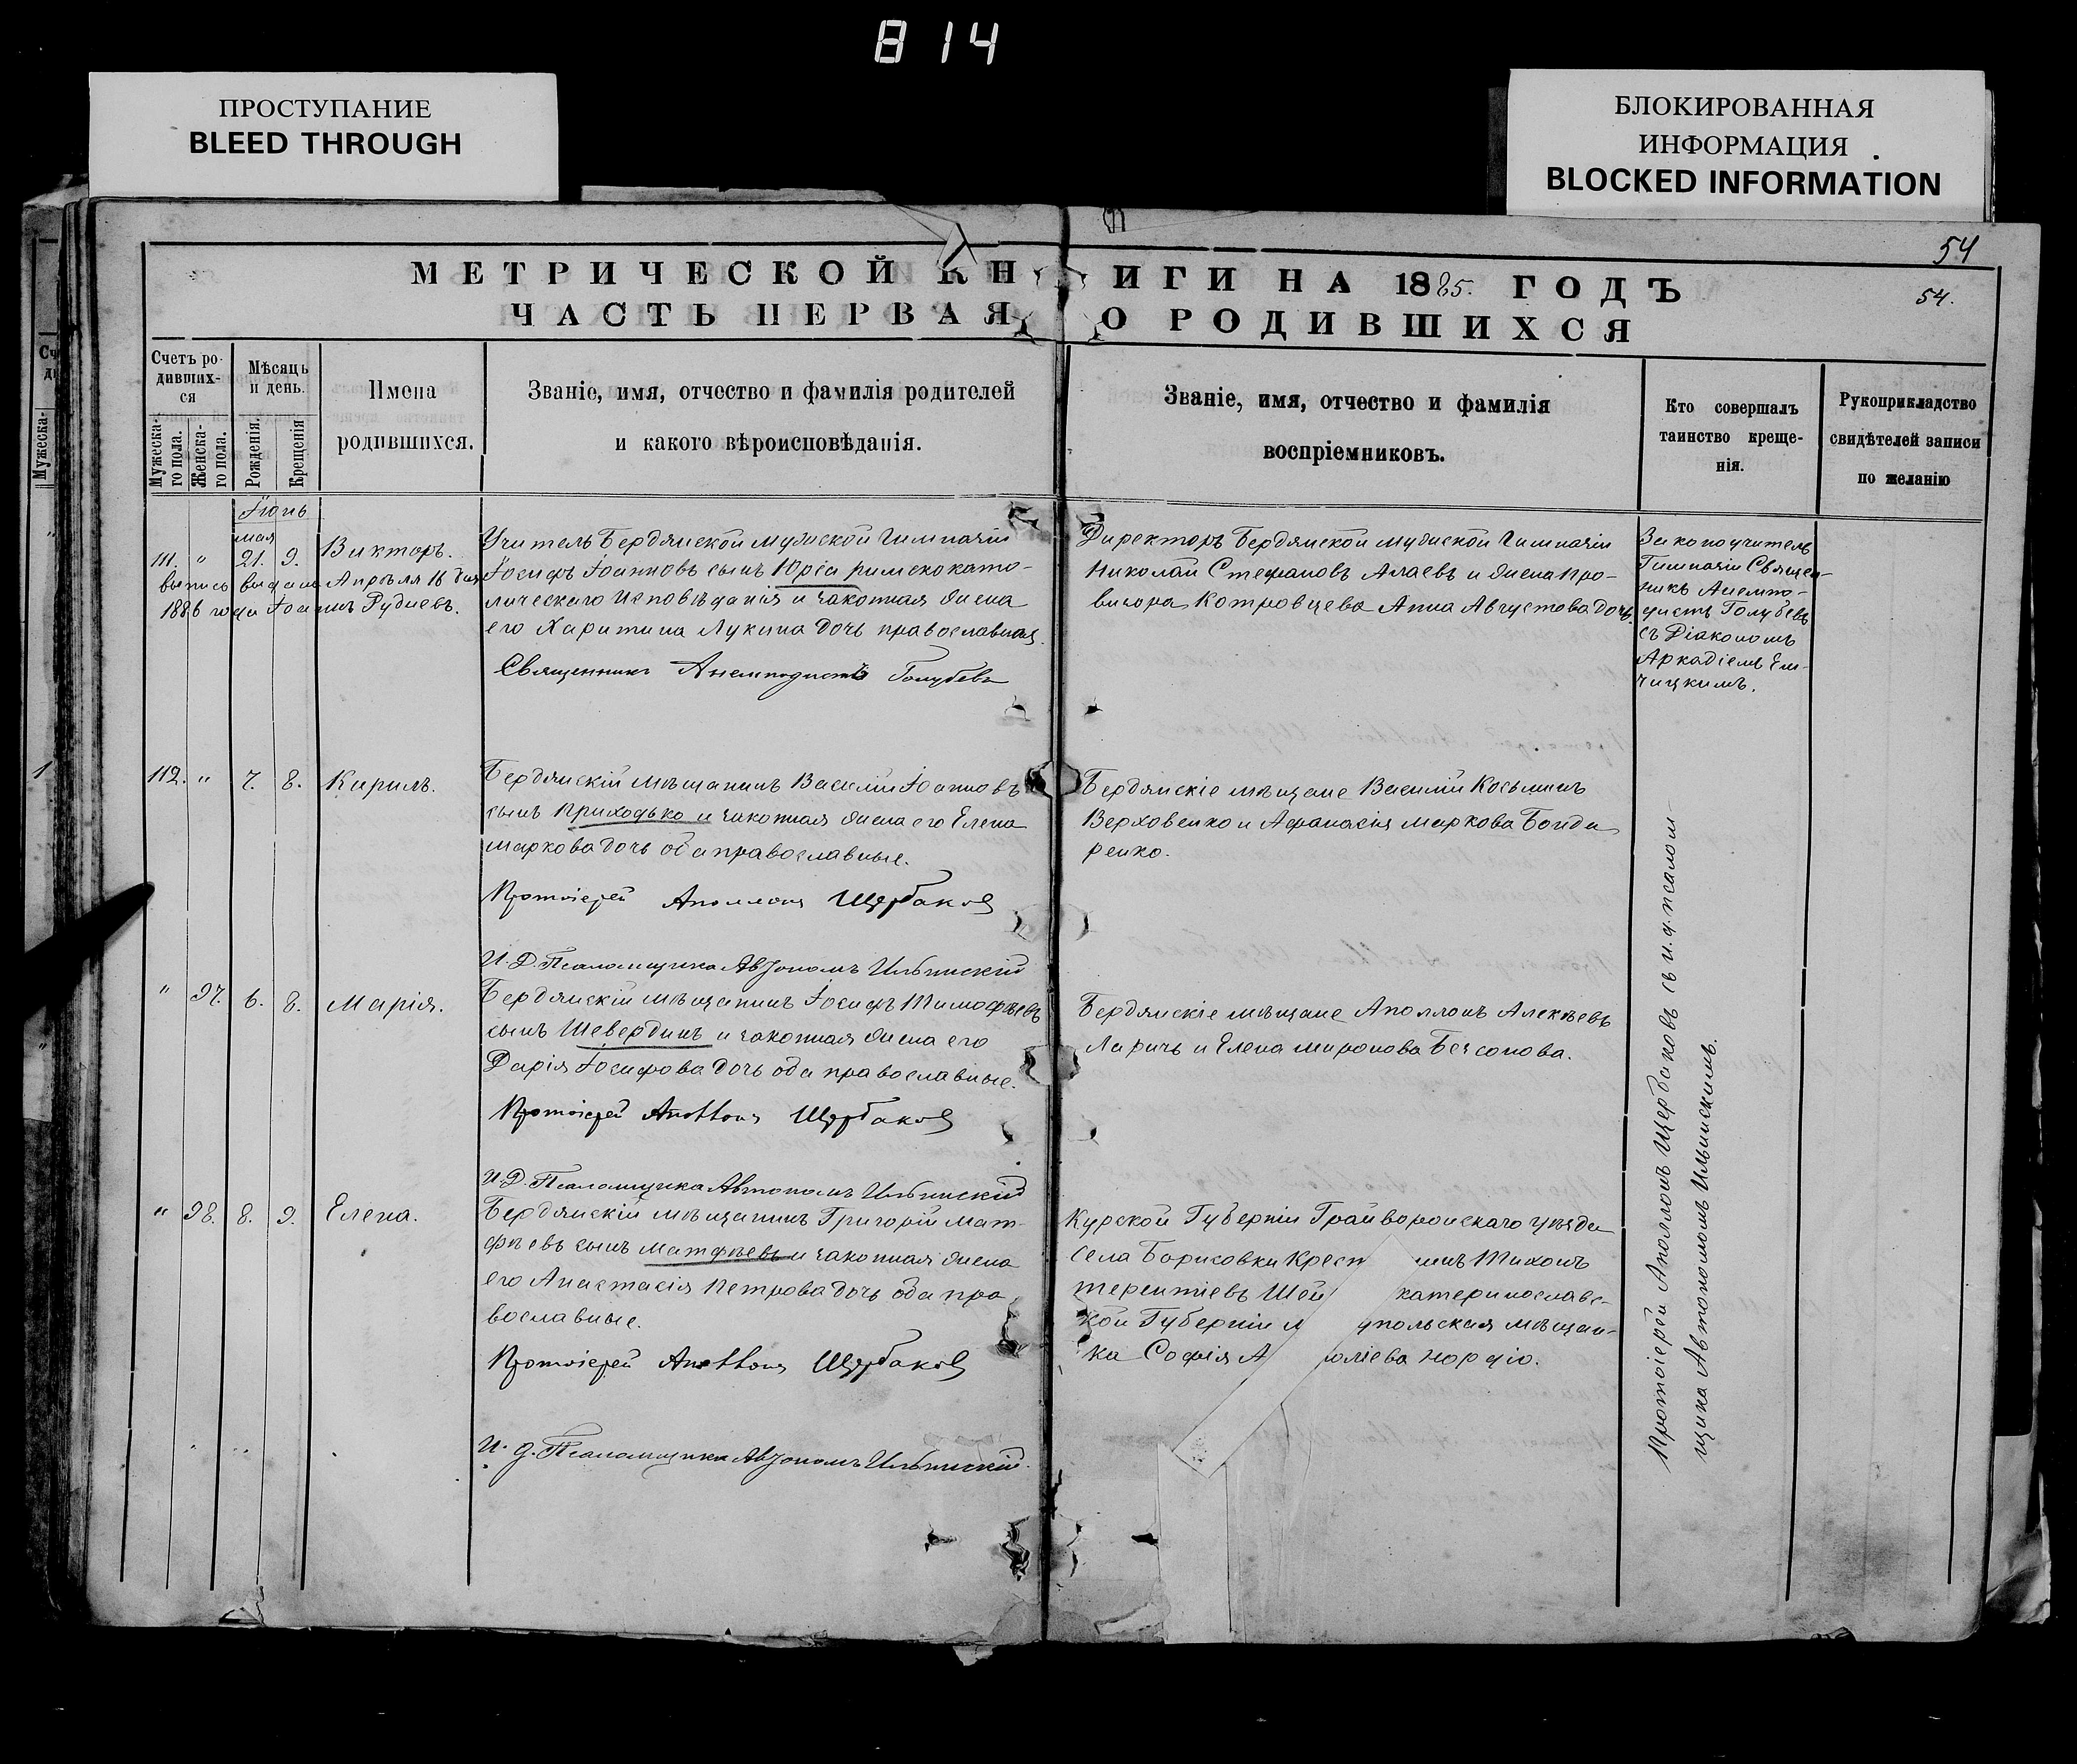 814
ПРОСТУПАНИЕ
BLEED THROUGH
БЛОКИРОВАННАЯ
ИНФОРМАЦИЯ
BLOCKED INFORMATION
54
54.
МЕТРИЧЕСКОЙ КНИГИ НА 1885. ГОДЪ
ЧАСТЬ ПЕРВАЯ О РОДИВШИХСЯ
Счетъ ро-
дивших-
ся
Мужеска-
го пола.
Женска-
го пола.
Мѣсяцъ
и день.
Рожденія.
Крещенія
Имена
родившихся.
Званіе, имя, отчество и фамилія родителей
и какого вѣроисповѣданія.
Званіе, имя, отчество и фамилія
воспріемниковъ.
Кто совершалъ
таинство креще-
нія.
Рукоприкладство
свидѣтелей записи
по желанію
Мужеска-
Іюнь
мая
111. " 21. 9. Викторъ.
выпись выдана Апрѣля 16 дня
1886 года Іоаннъ Рудневъ.
Учитель Бердянской мужской Гимназіи
Іосифъ Іоанновъ сынъ Юрса римско като-
лическаго исповѣданія и законная жена
его Харитина Лукина дочь православная.
Священникъ Анемподистъ Голубевъ
Директоръ Бердянской мужской Гимназіи
Николай Стефановъ Алаевъ и жена про-
визора Котровцева Анна Августова дочь.
Законоучитель
Гимназіи Священ-
никъ Анемпо-
дистъ Голубевъ
съ Діакономъ
Аркадіемъ
112. " 7. 8. Кирилъ.
Бердянскій мѣщанинъ Василій Іоанновъ
сынъ Приходько и законная жена его Елена
Маркова дочь оба православные.
Протоіерей Аполлонъ Щербаковъ
И. Д. Псаломщика Автономъ Ильинскій
Бердянскіе мѣщане Василій Косьминъ
Верховенко и Афанасія Маркова Бонда
ренко.
" 97. 6. 8. Марія.
Бердянскій мѣщанинъ Іосифъ Тимофѣевъ
сынъ Шевердинъ и законная жена его
Дарія Іосифова дочь оба православные.
Протоіерей Аполлонъ Щербаковъ
И. Д. Псаломщика Автономъ Ильинскій
Бердянскіе мѣщане Аполлонъ Алексѣевъ
Ларичъ и Елена Миронова Безсонова.
" 98. 8. 9. Елена.
Бердянскій мѣщанинъ Григорій Мат-
фѣевъ сынъ Матфѣевъ и законная жена
его Анастасія Петрова дочь оба пра
вославные.
Протоіерей Аполлонъ Щербаковъ
И. д. Псаломщика Автономъ Ильинскій.
Курской Губерніи Грайворонскаго уѣзда
села Борисовки Крест инъ Тихонъ
Терентіевъ Шей катеринославс-
кой Губерніи М упольская мѣщан-
ка Софія А оліева Нордіо.
Протоіерей Аполлонъ Щербаковъ съ и. д. псалом-
щика Автономомъ Ильинскимъ.